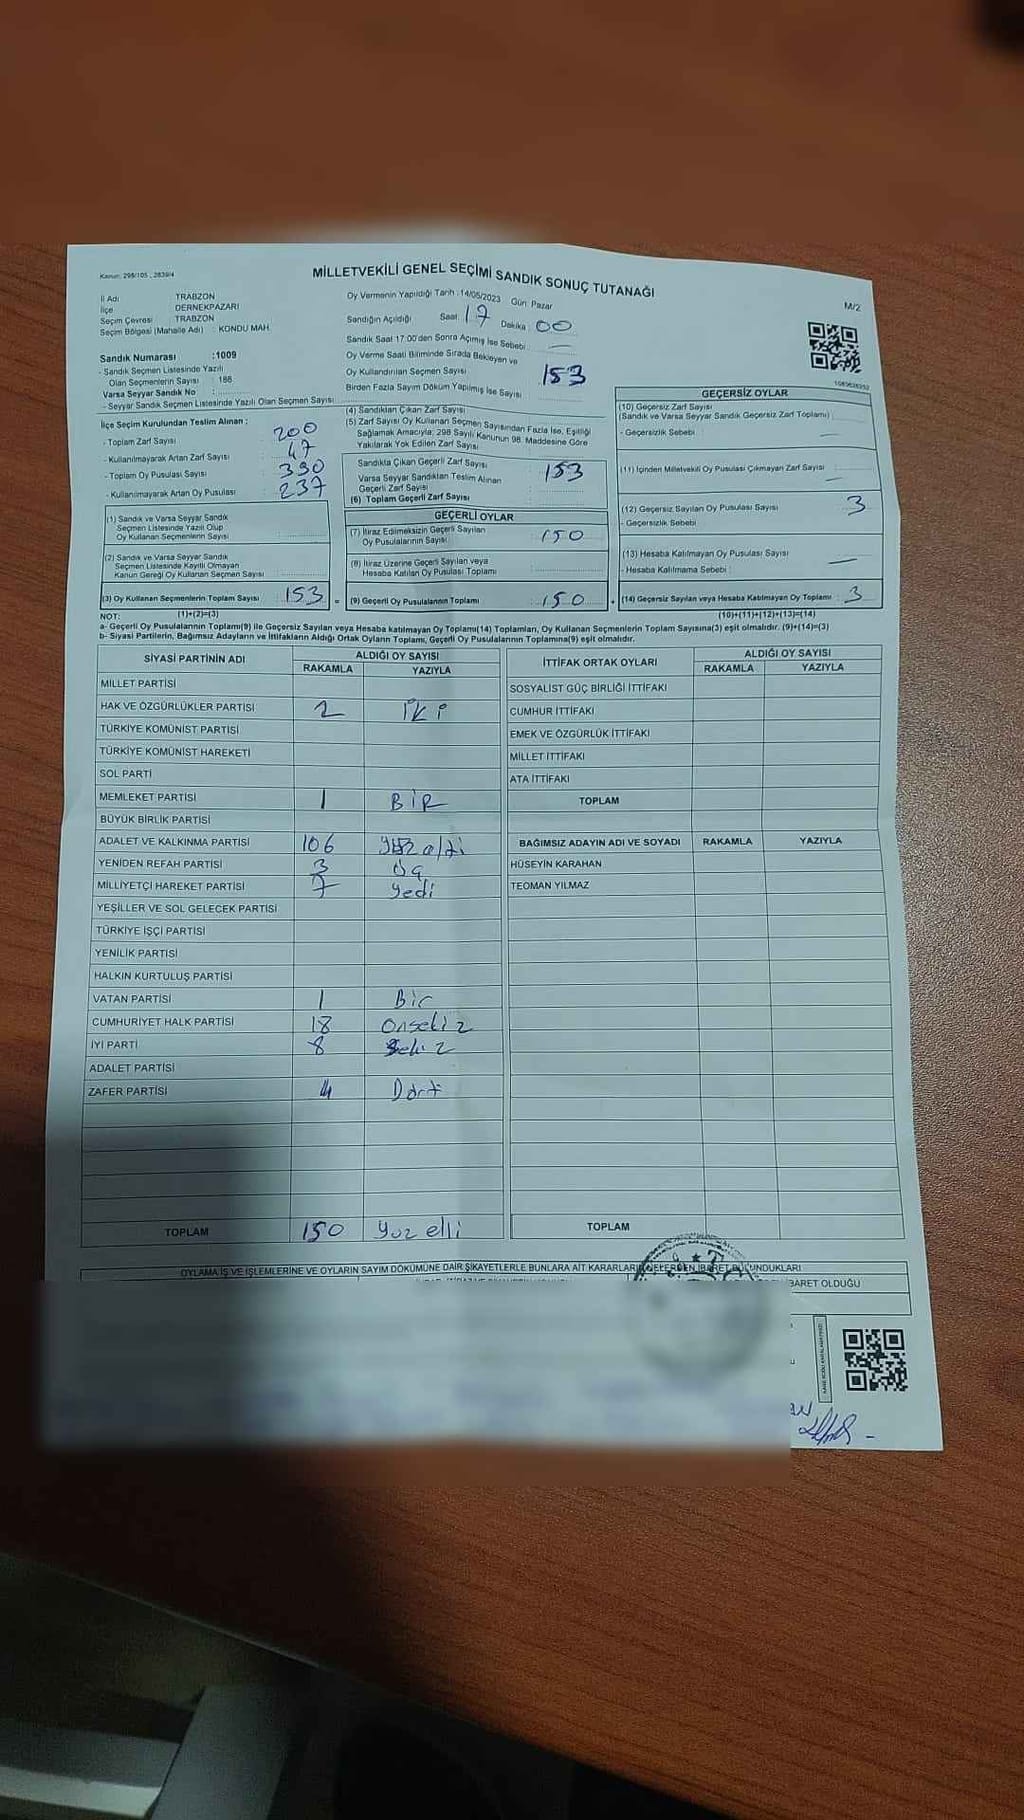 Kanun: 298/105 , 2839/4
MİLLETVEKİLİ GENEL SEÇİMİ SANDIK SONUÇ TUTANAĞI
M/2
İl Adı TRABZON
İlçe DERNEKPAZARI
Seçim Çevresi : TRABZON
Seçim Bölgesi (Mahalle Adı) : KONDU MAH.
Oy Vermenin Yapıldığı Tarih :14/05/2023 Gün: Pazar
Sandığın Açıldığı Saat: 17 Dakika : 00
Sandık Saat 17:00'den Sonra Açılmış İse Sebebi : —
Oy Verme Saati Bitiminde Sırada Bekleyen ve
Oy Kullandırılan Seçmen Sayısı 153
Birden Fazla Sayım Döküm Yapılmış İse Sayısı
Sandık Numarası :1009
- Sandık Seçmen Listesinde Yazılı
Olan Seçmenlerin Sayısı : 186
Varsa Seyyar Sandık No :
- Seyyar Sandık Seçmen Listesinde Yazılı Olan Seçmen Sayısı
İlçe Seçim Kurulundan Teslim Alınan :
- Toplam Zarf Sayısı 200
- Kullanılmayarak Artan Zarf Sayısı : 47
- Toplam Oy Pusulası Sayısı : 390
- Kullanılmayarak Artan Oy Pusulası : 237
(1) Sandık ve Varsa Seyyar Sandık
Seçmen Listesinde Yazılı Olup
Oy Kullanan Seçmenlerin Sayısı
(2) Sandık ve Varsa Seyyar Sandık
Seçmen Listesinde Kayıtlı Olmayan
Kanun Gereği Oy Kullanan Seçmen Sayısı
(3) Oy Kullanan Seçmenlerin Toplam Sayısı 153
(1)+(2)=(3)
(4) Sandıktan Çıkan Zarf Sayısı
(5) Zarf Sayısı Oy Kullanan Seçmen Sayısından Fazla İse, Eşitliği
Sağlamak Amacıyla; 298 Sayılı Kanunun 98. Maddesine Göre
Yakılarak Yok Edilen Zarf Sayısı
Sandıkta Çıkan Geçerli Zarf Sayısı 153
Varsa Seyyar Sandıktan Teslim Alınan
Geçerli Zarf Sayısı
(6) Toplam Geçerli Zarf Sayısı
GEÇERLİ OYLAR
(7) İtiraz Edilmeksizin Geçerli Sayılan
Oy Pusulalarının Sayısı 150
(8) İtiraz Üzerine Geçerli Sayılan veya
Hesaba Katılan Oy Pusulası Toplamı
= (9) Geçerli Oy Pusulalarının Toplamı 150 +
GEÇERSİZ OYLAR
(10) Geçersiz Zarf Sayısı
(Sandık ve Varsa Seyyar Sandık Geçersiz Zarf Toplamı) :
- Geçersizlik Sebebi : —
(11) İçinden Milletvekili Oy Pusulası Çıkmayan Zarf Sayısı —
(12) Geçersiz Sayılan Oy Pusulası Sayısı 3
- Geçersizlik Sebebi
(13) Hesaba Katılmayan Oy Pusulası Sayısı
- Hesaba Katılmama Sebebi : —
(14) Geçersiz Sayılan veya Hesaba Katılmayan Oy Toplamı : 3
(10)+(11)+(12)+(13)=(14)
NOT:
a- Geçerli Oy Pusulalarının Toplamı(9) ile Geçersiz Sayılan veya Hesaba katılmayan Oy Toplamı(14) Toplamları, Oy Kullanan Seçmenlerin Toplam Sayısına(3) eşit olmalıdır. (9)+(14)=(3)
b- Siyasi Partilerin, Bağımsız Adayların ve İttifakların Aldığı Ortak Oyların Toplamı, Geçerli Oy Pusulalarının Toplamına(9) eşit olmalıdır.
SİYASİ PARTİNİN ADI ALDIĞI OY SAYISI
RAKAMLA YAZIYLA
MİLLET PARTİSİ
HAK VE ÖZGÜRLÜKLER PARTİSİ 2 İki
TÜRKİYE KOMÜNİST PARTİSİ
TÜRKİYE KOMÜNİST HAREKETİ
SOL PARTİ
MEMLEKET PARTİSİ 1 BİR
BÜYÜK BİRLİK PARTİSİ
ADALET VE KALKINMA PARTİSİ 106 yüzaltı
YENİDEN REFAH PARTİSİ 3 üç
MİLLİYETÇİ HAREKET PARTİSİ 7 yedi
YEŞİLLER VE SOL GELECEK PARTİSİ
TÜRKİYE İŞÇİ PARTİSİ
YENİLİK PARTİSİ
HALKIN KURTULUŞ PARTİSİ
VATAN PARTİSİ 1 Bir
CUMHURİYET HALK PARTİSİ 18 onsekiz
İYİ PARTİ 8 Sekiz
ADALET PARTİSİ
ZAFER PARTİSİ 4 Dört
TOPLAM 150 yüz elli
İTTİFAK ORTAK OYLARI ALDIĞI OY SAYISI
RAKAMLA YAZIYLA
SOSYALİST GÜÇ BİRLİĞİ İTTİFAKI
CUMHUR İTTİFAKI
EMEK VE ÖZGÜRLÜK İTTİFAKI
MİLLET İTTİFAKI
ATA İTTİFAKI
TOPLAM
BAĞIMSIZ ADAYIN ADI VE SOYADI RAKAMLA YAZIYLA
HÜSEYİN KARAHAN
TEOMAN YILMAZ
TOPLAM
OYLAMA İŞ VE İŞLEMLERİNE VE OYLARIN SAYIM DÖKÜMÜNE DAİR ŞİKAYETLERLE BUNLARA AİT KARARLAR
BARET OLDUĞU